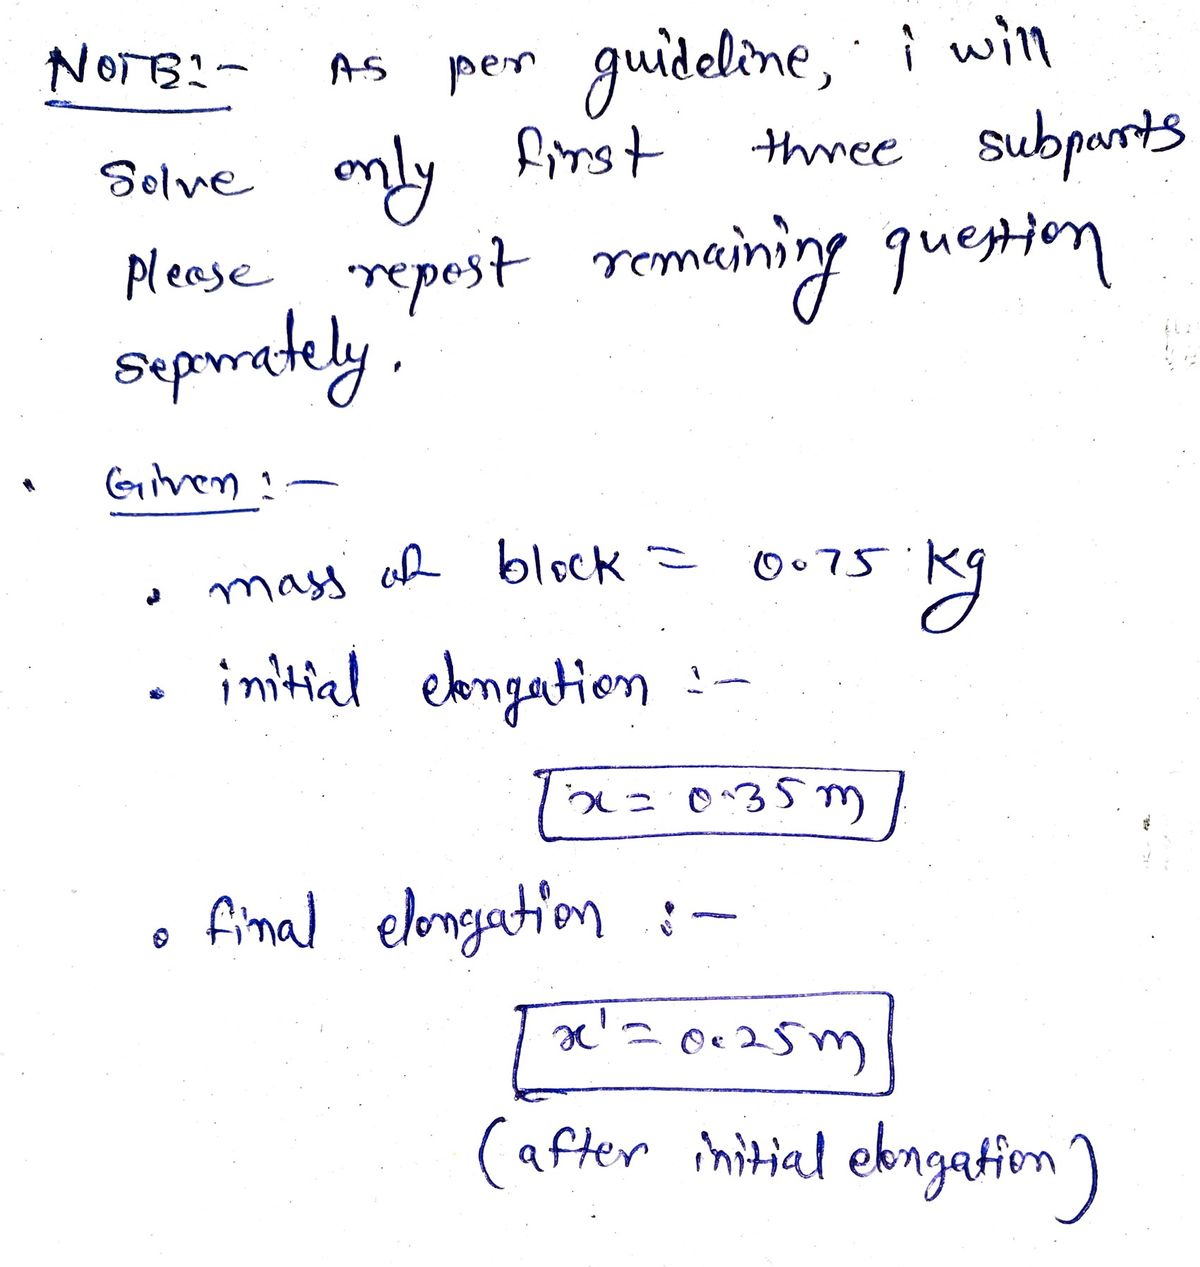 NOTE:-  As per guideline, i will
solve only first three subparts
please repost remaining question
separately.
Given :-
• mass of block = 0.75 kg
• initial elongation :-
x = 0.35 m
• final elongation :-
x' = 0.25 m
(after initial elongation)